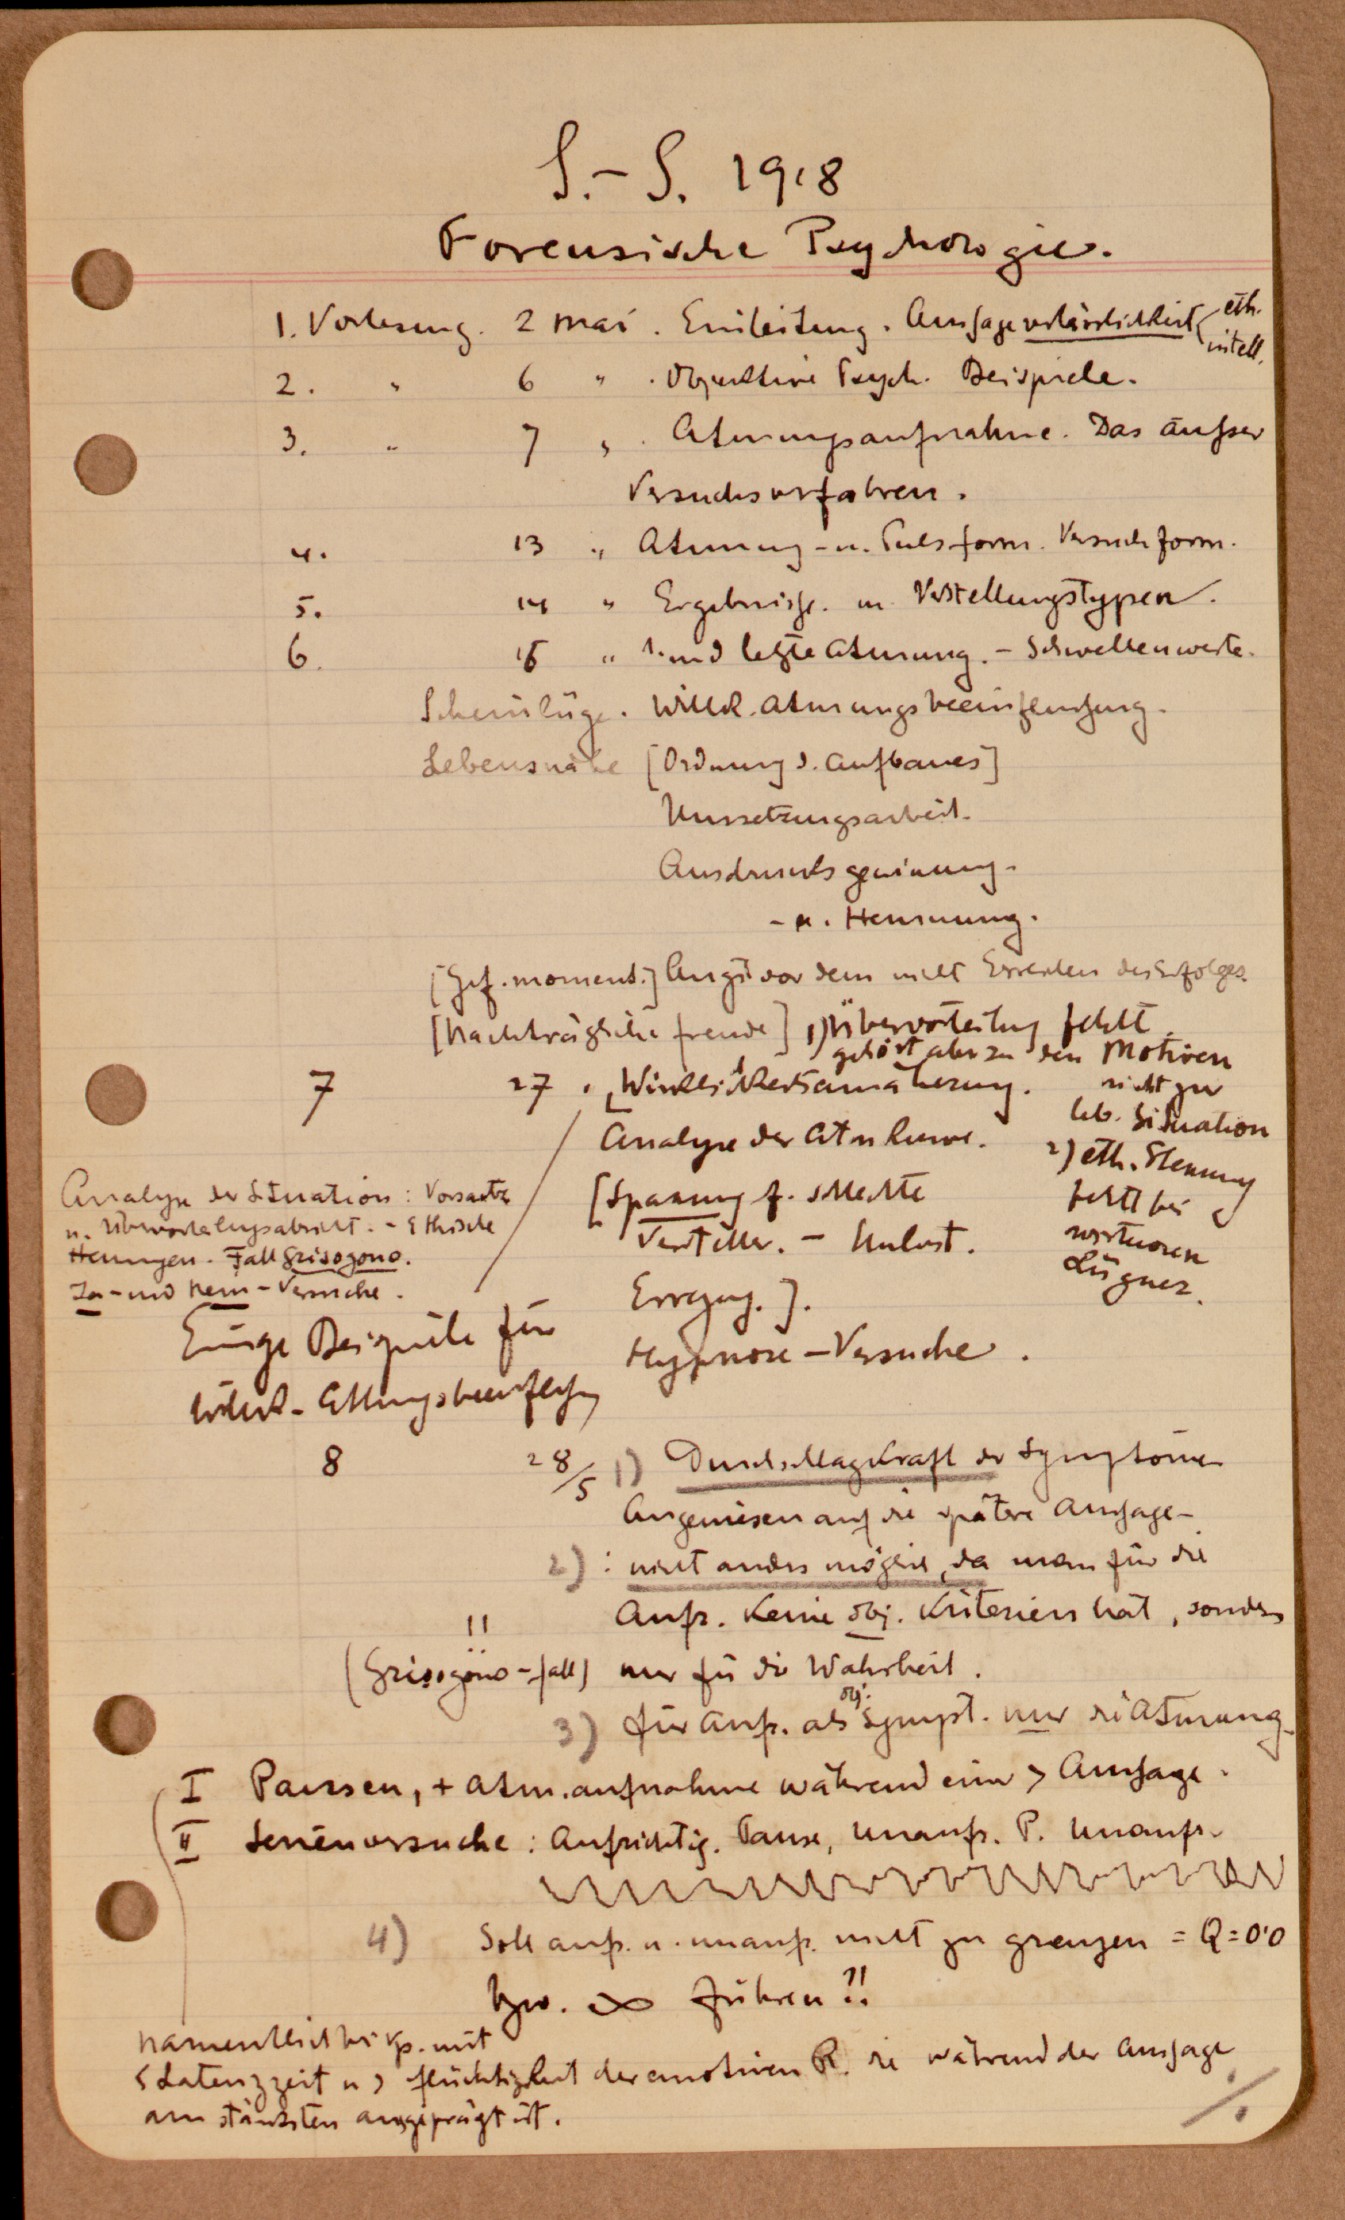 S.-S. 1918
Forensische Psychologie.
1. Vorlesung. 2 Mai. Einleitung. Aussageverlässlichkeit eth.
intell.
2. " 6 " . Objektive Psych. Beispiele.
3. " 7 " . Atmungsaufnahme. Das äußer
Versuchsverfahren.
4. 13 " Atmung- u. Pulsform. Versuchsform.
5. 14 " Ergebnisse. Verstellungstypen.
6. 15 " 1. und letzte Atmung. - Schwellenwerte.
Scheinlüge. Willk. Atmungsbeeinflussung.
Lebensnähe [Ordnung d. Aufbaues]
Umsetzungsarbeit.
Ausdrucksgewinnung.
- u. Hemmung.
[Gef. moment.] Angst vor dem nicht Erreichen des Erfolges.
[Nachträgliche Freude] 1) Übervorteilung fehlt,
gehört aber zu den Motiven
7 27 . [Wirklichkeitsannäherung. nicht zur
leb. Situation
Analyse der Atmkurve. 2) eth. Hemmung
fehlt bei
virtuosen
Lügner.
Analyse der Situation: Vorsatz
u. Übervorteilungsabsicht. - Ethische
Hemungen. Fall Grisogono.
Ja- und Nein-Versuche.
[Spannung f. schlechte
Versteller. - Unlust.
Erregung.].
Hypnose-Versuche.
Einige Beispiele für
willk. Atmungsbeeinflussg
8 28/5 1) Durchschlagskraft der Symptome
Angewiesen auf die spätere Aussage-
2) : nicht anders möglich, da man für die
!! Aufr. keine obj. Kriterien hat, sondern
(Grisogono-fall) nur für die Wahrheit.
3) für Aufr. als obj. Sympt. nur die Atmung-
I Pausen, + Atm.aufnahme während einer > Aussage.
II Serienversuche: Aufrichtig. Pause, Unaufr. P. Unaufr.
4) Soll aufr. u. unaufr. nicht zu grenzen = Q = 0·0
bzw. ∞ führen?!
Namentlich bei Vp. mit
< Latenzzeit u > Flüchtigkeit der emotiven R. die während der Aussage
am stärksten ausgeprägt ist.
./.